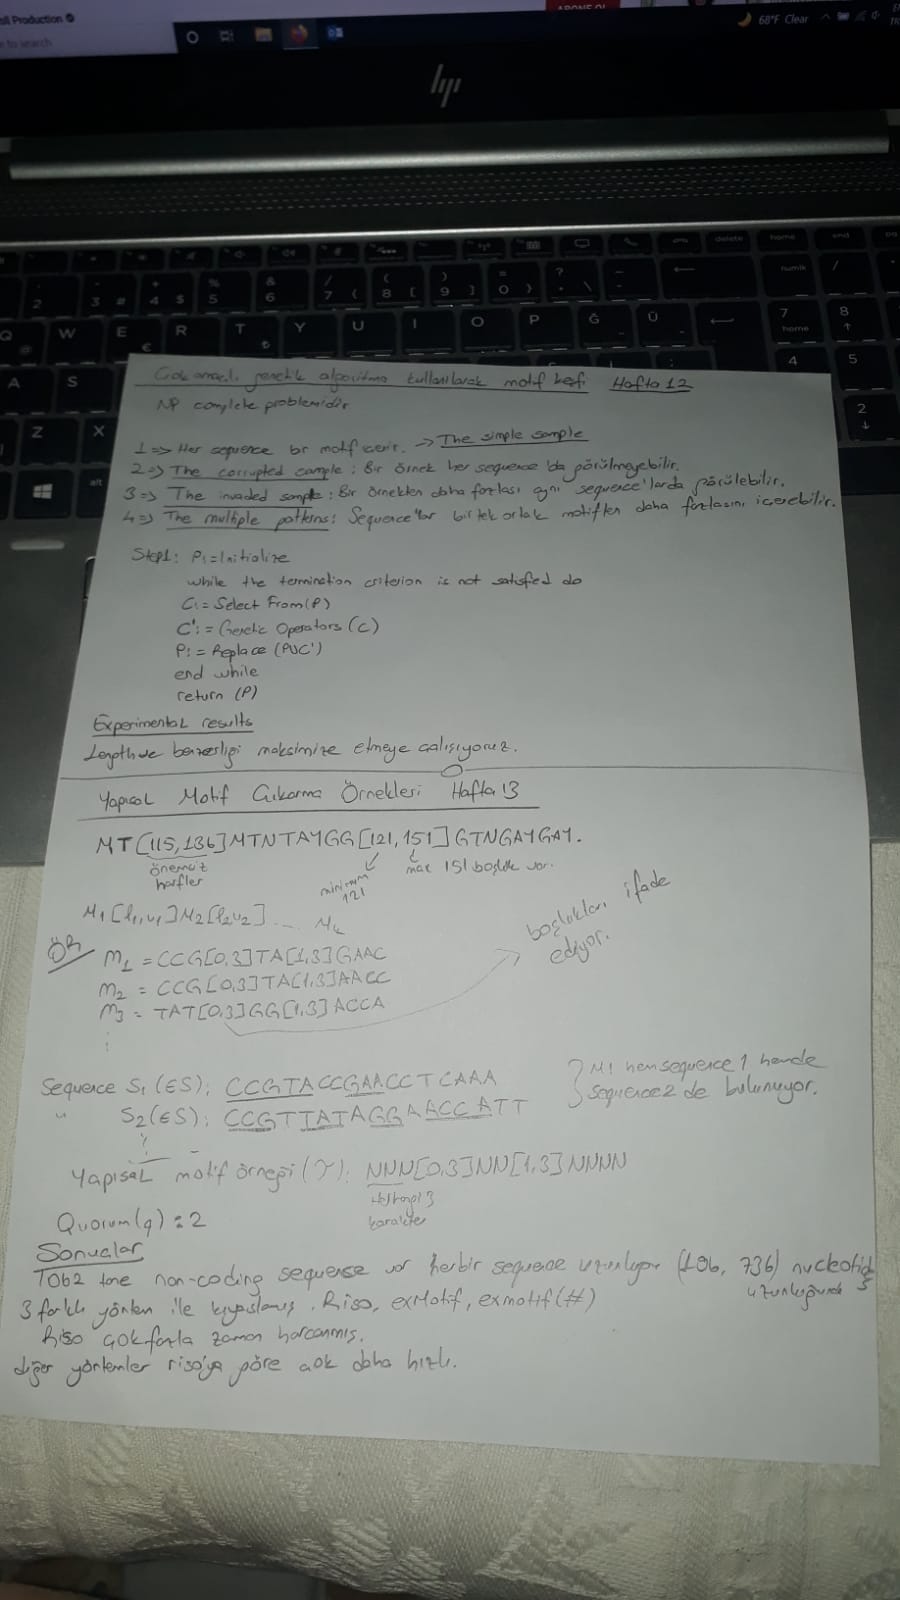 ll Production
e to search
ABONE OL
68°F Clear
hp
delete home end
2 3 # + 4 $ % 5 & 6 / 7 { ( 8 [ ) 9 ] = 0 } ? * \ - _ numlk /
Q @ W E € R T ₺ Y U I O P Ğ Ü 7 home 8
A S 4 5
Z X 2
alt
Çok amaçlı genetik algoritma kullanılarak motif keşfi Hafta 12
NP complete problemidir
1 => Her sequence bir motif içerir. -> The simple sample
2 => The corrupted sample : Bir örnek her sequence'da görülmeyebilir.
3 => The invaded sample : Bir örnekten daha fazlası aynı sequence'larda görülebilir.
4 => The multiple patterns : Sequence'lar bir tek ortak motiften daha fazlasını içerebilir.
Step1: P:=Initialize
while the termination criterion is not satisfied do
C:= Select From(P)
C':= Genetic Operators (C)
P:= Replace (PUC')
end while
return (P)
Experimental results
Length ve benzerliği maksimize etmeye çalışıyoruz.
Yapısal Motif Çıkarma Örnekleri Hafta 13
MT[115,136]MTNTAYGG[121,151]GTNGAYGAY.
önemsiz
harfler
minimum
121
max 151 boşluk var.
M1[l1,u1]M2[l2,u2] ... Mk
boşlukları ifade
ediyor.
ÖR
M1 = CCG[0,3]TA[1,3]GAAC
M2 = CCG[0,3]TA[1,3]AACC
M3 = TAT[0,3]GG[1,3]ACCA
Sequence S1 (∈S): CCGTACCGAACCTCAAA
" S2 (∈S): CCGTTATAGGAACCATT
} M1 hem sequence 1 hemde
sequence 2 de bulunuyor.
Yapısal motif örneği (T): NNN[0,3]NN[1,3]NNNN
Herhangi 3
karakter
Quorum(q) : 2
Sonuçlar
1062 tane non-coding sequence var herbir sequence uzunluğu (186, 736) nucleotid
uzunluğunda
3 farklı yöntem ile kıyaslamış. Riso, exMotif, exmotif(#)
Riso çok fazla zaman harcanmış.
diğer yöntemler riso'ya göre çok daha hızlı.